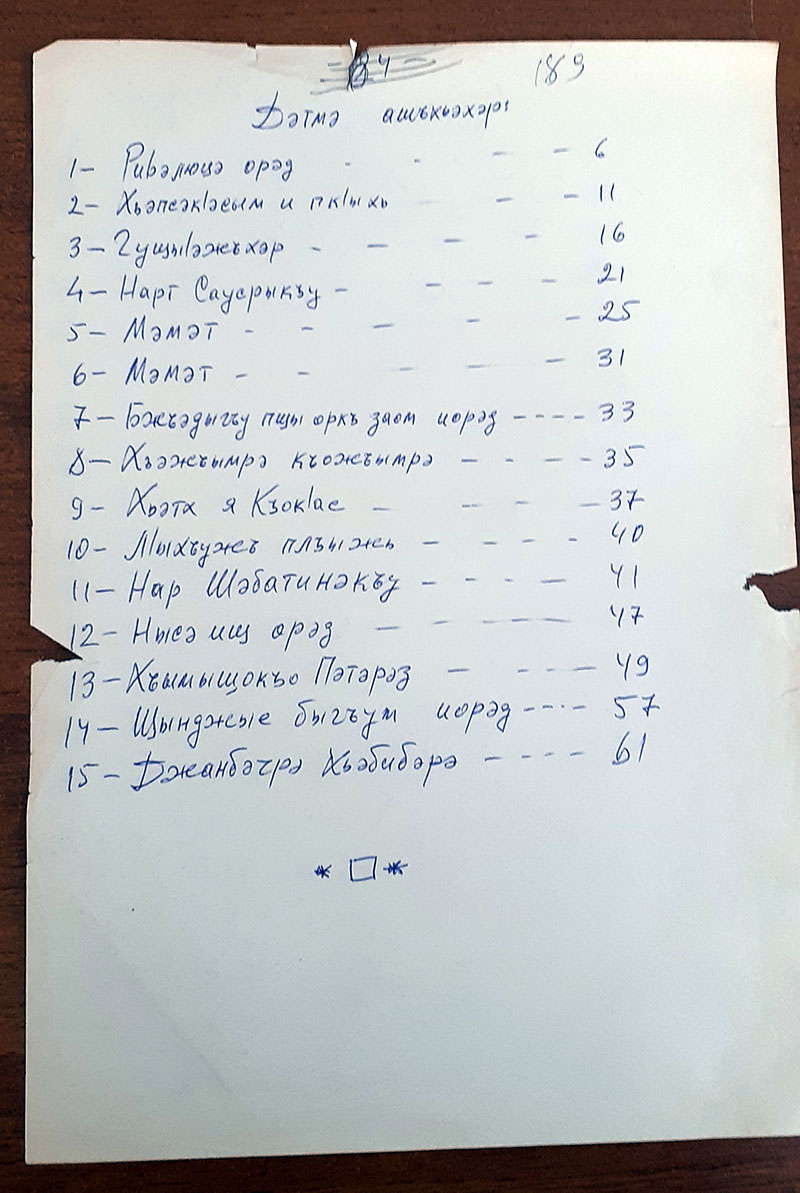 189
Дэтмэ ашъхьэхэр:
1– Риɓэлюцэ орэд - - – – 6
2– Хьэпсэкӏэсым и пкӏыхь – – 11
3– Гущыӏэжъхэр - – – - 16
4– Нарт Саусрыкъу – - – – 21
5– Мэмэт - - – - – 25
6– Мэмэт – - - – – 31
7– Бжъэдыгъу пщы оркъ заом иорэд ---- 33
8– Хьэжъымрэ къожъымрэ – - – - 35
9– Хьэтх я Къокӏас – – - – 37
10– Лӏыхъужъ плъыжь – - - - 40
11– Нар Шэбатинэкъу – - - – 41
12– Нысэ ищ орэд – – --– 47
13– Хъымыщокъо Пэтэрэз – - -– 49
14– Щынджые быгъум иорэд --·- 57
15– Джанбэчрэ Хьэбибэрэ – - - - 61
* □ *